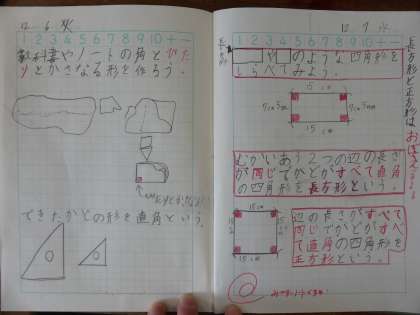 12 6 火
1 2 3 4 5 6 7 8 9 10 十 一
教科書やノートの角とぴた
りとかさなる形を作ろう。
できたかどの形を直角という。
12 7 水
1 2 3 4 5 6 7 8 9 10 十 一
や のような四角形を
しらべてみよう。
15cm
7cm5mm
7cm5mm
15cm
むかいあう2つの辺の長さ
が同じでかどがすべて直角
の四角形を長方形という。
15cm
15cm
辺の長さがすべて
同じでかどがすべ
て直角の四角形を
正方形という。
長方形と正方形はおぼえる